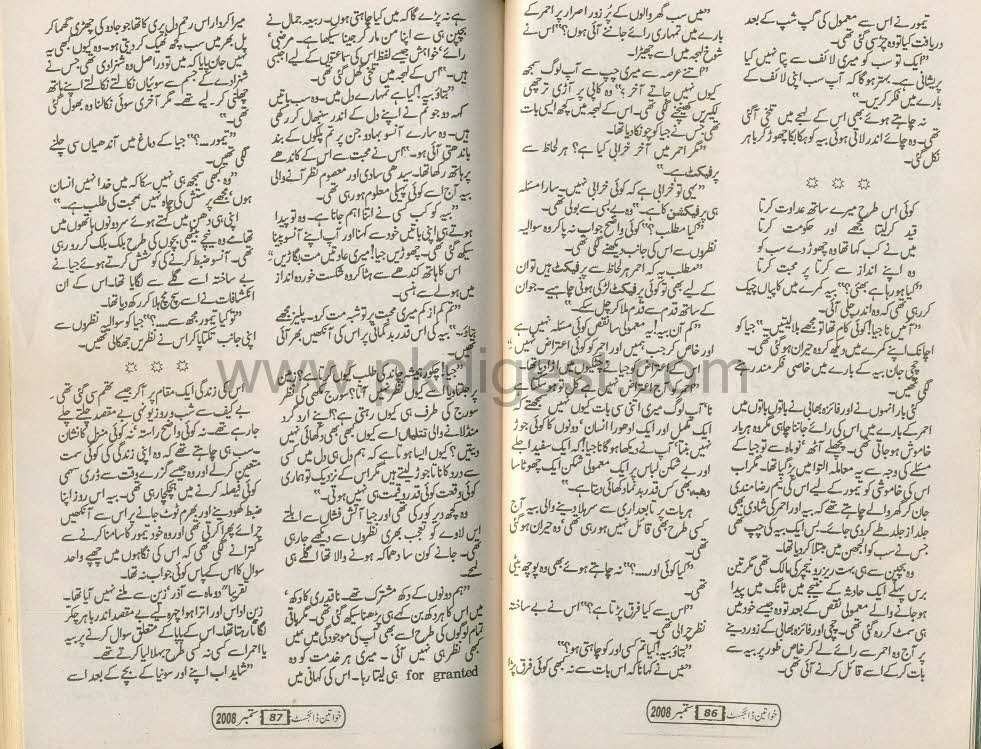 تیمور نے اس سے معمول کی گپ شپ کے بعد
دریافت کیا تو وہ چڑ سی گئی تھی۔
"ایک تو سب کو میری لائف سے پتا نہیں کیا
پریشانی ہے۔ بہتر ہو گا کہ آپ سب اپنی لائف کے
بارے میں فکر کریں۔"
نہ چاہتے ہوئے بھی اس کے لہجے میں تلخی آ گئی
تھی۔ وہ چائے اندر لاتی ہوئی بیہ کو ہکا بکا چھوڑ کر باہر
نکل گئی۔
کوئی اس طرح میرے ساتھ عداوت کرتا
قید کر لیتا مجھے اور حکومت کرتا
میں نے کب کہا تھا وہ چھوڑ دے سب کو
وہ اپنے انداز سے کرتا پر محبت کرتا
"کیا ہو رہا ہے بھئی؟" بیہ کمرے میں کاپیاں چیک
کر رہی تھی کہ وہ اندر چلی آئی۔
"آئیں نا جیا! کوئی کام تھا تو مجھے بلا لیتیں۔" جیا کو
اچانک اپنے کمرے میں دیکھ کر وہ حیران ہو گئی تھی۔
چچی جان بیہ کے بارے میں خاصی فکر مند رہنے
لگی تھیں۔
کئی بار انہوں نے اور فائزہ بھابی نے باتوں باتوں میں
احمر کے بارے میں اس کی رائے جاننا چاہی مگر وہ ہر بار
خاموش ہو جاتی تھی۔ پچھلے آٹھ نو ماہ سے تو جیا کے
مسئلے کی وجہ سے یہ معاملہ التوا میں پڑ گیا تھا۔ مگر اب
اس کی خاموشی کو تیمور کے لیے اس کی نیم رضا مندی
جان کر گھر والے چاہتے تھے کہ بیہ اور احمر کی شادی بھی
جلد از جلد طے کر دی جائے۔ بس ایک بیہ کی چپ تھی
جس نے سب کو الجھن میں مبتلا کر دیا تھا۔
وہ بچپن سے ہی بہت ریزرو نیچر کی مالک تھی مگر تین
برس پہلے ایک حادثے کے نتیجے میں ٹانگ میں پیدا
ہو جانے والے معمولی نقص کے بعد تو وہ جیسے خود میں
ہی سمٹ کر رہ گئی تھی۔ چچی اور فائزہ بھابی کے زور دینے
پر آج وہ احمر سے رائے لے کر خاص طور پر بیہ سے
بات کر کے اسے قائل کرنے آئی تھی۔
"میں سب گھر والوں کے پُر زور اصرار پر احمر کے
بارے میں تمہاری رائے جاننے آئی ہوں؟" اس نے
شوخ لہجہ میں اسے چھیڑا۔
"اتنے عرصہ سے میری چپ سے آپ لوگ سمجھ
کیوں نہیں جاتے آخر؟" وہ کاپی پر آڑی ترچھی
لکیریں کھینچنے لگی تھی۔ اس کے لہجے میں کچھ ایسی بات
تھی جس نے جیا کو چونکا دیا تھا۔
"مگر احمر میں آخر خرابی کیا ہے؟ ہر لحاظ سے
پرفیکٹ ہے۔"
"یہی تو خرابی ہے کہ کوئی خرابی نہیں۔ سارا مسئلہ
ہی پرفیکشن کا ہے۔" وہ بے بسی سے بولی تھی۔
"کیا مطلب؟" کوئی واضح جواب نہ پا کر وہ سوالیہ
نظروں سے اس کی جانب دیکھنے لگی تھی۔
"مطلب یہ کہ احمر ہر لحاظ سے پرفیکٹ ہیں تو ان
کے لیے بھی تو کوئی پرفیکٹ لڑکی ہونی چاہیے۔ جو ان
کے ساتھ قدم سے قدم ملا کر چل سکے۔"
"کم آن بیہ! یہ معمولی سا نقص کوئی مسئلہ نہیں ہے
اور خاص کر جب ہمیں اور احمر کو کوئی اعتراض نہیں ہے۔
نا۔" آپ لوگ میری اتنی سی بات کیوں نہیں سمجھتے کہ
ایک مکمل اور ایک ادھورا انسان دونوں کا کوئی جوڑ
نہیں بنتا؟ آپ نے دیکھا ہو گا نا جیا! کہ ایک سفید اجلے
اور بے شکن لباس پر ایک معمولی شکن ایک چھوٹا سا
دھبہ بھی کس قدر بد نما دکھائی دیتا ہے۔"
ہر بات پر تابعداری سے سر ہلا دینے والی بیہ آج
کسی طرح بھی قائل نہیں ہو رہی تھی۔ وہ حیران ہو گئی
تھی۔
"کیا کوئی اور....؟" نہ چاہتے ہوئے بھی وہ پوچھ بیٹھی
تھی۔
"اس سے کیا فرق پڑتا ہے؟" اس نے بے ساختہ
نظر چرالی تھی۔
"بتاؤ بیہ! کیا تم کسی اور کو چاہتی ہو؟"
"میں نے کہا نا کہ اس بات سے نہ بھی کوئی فرق پڑا
خواتین ڈائجسٹ 86 ستمبر 2008
ہے نہ پڑے گا کہ میں کیا چاہتی ہوں۔ ربیعہ جمال نے
بچپن ہی سے اپنا من مار کر جینا سیکھا ہے۔ مرضی،
رائے، خواہش جیسے لفظ اس کی سماعتوں کے لیے اجنبی
ہیں۔" اس کے لہجہ میں تلخی گھل گئی تھی۔
"بتاؤ بیہ! کیا ہے تمہارے دل میں۔ وہ سب باتیں
کہہ دو جو تم نے اپنے دل کے اندر سنبھال کر رکھی
ہیں۔ وہ سارے آنسو بہا دو جن پر تم پلکوں کے بند
باندھتی آئی ہو۔" اس نے محبت سے اس کے کاندھے
پر ہاتھ رکھا تھا۔ سیدھی سادی اور معصوم نظر آنے والی
بیہ آج اسے کوئی پہیلی معلوم ہو رہی تھی۔
"بیہ کو کب کسی نے اتنا اہم جانا ہے۔ وہ تو پیدا
ہوتے ہی اپنی باتیں خود سے کہنا اور آپ اپنے آنسو پینا
سیکھ گئی تھی۔ چھوڑیں جیا! میری عادتیں مت بگاڑیں۔"
اس کا ہاتھ کندھے سے ہٹا کر وہ شکست خوردہ انداز
میں ہولے سے ہنسی۔
"تم کم از کم میری محبت پر تو شبہ مت کرو۔ پلیز مجھے
بتاؤ۔" بیہ کی اس قدر بدگمانی پر اس کی آنکھیں بھر آئی
تھیں۔
"جیا! چکور ہمیشہ چاند کی طلب کیوں کرتا ہے؟ زمین
سورج کی طرف ہی کیوں رہتی ہے؟ اپنے ارد گرد
منڈلانے والی تتلیاں اسے کیوں بھی بھی دکھائی نہیں
دیتیں؟ کیوں ایسا ہوتا ہے کہ ہم دل ہی دل میں کسی
سے درد کا ناتا جوڑ لیتے ہیں مگر اس کے نزدیک تو ہماری
کوئی وقعت کوئی قدر و قیمت ہی نہیں ہوتی۔"
وہ کچھ دیر کو رکی تھی اور جیا آتش فشاں سے ابلتے
اس لاوے کو تعجب بھری نظروں سے دیکھے جا رہی
تھی۔ جانے کون سا دھماکہ ہونے والا تھا اگلے ہی
لمحے۔
"ہم دونوں کے دکھ مشترک تھے۔ نا قدری کا دکھ
میں اس کا ہر دکھ بن کہے ہی پڑھنا سیکھ گئی تھی۔ مگر باقی
تمام لوگوں کی طرح اسے بھی آپ کی موجودگی میں میں
بھی نظر ہی نہیں آئی۔ میری ہر خدمت کو وہ
for granted ہی لیتا رہا۔ اس کی کہانی میں
میرا کردار اس رحم دل پری کا تھا جو جادو کی چھڑی گھما کر
پل بھر میں سب کچھ ٹھیک کر دیتی ہو۔ وہ کیوں کبھی یہ
نہیں جان پایا کہ میں تو دراصل وہ شہزادی تھی جس نے
شہزادے کے جسم سے سوئیاں نکالتے نکالتے اپنے ہاتھ
چھلنی کر لیے تھے۔ مگر آخری سوئی نکالنا وہ بھول گئی
تھی۔
"تیمور....؟" جیا کے دماغ میں آندھیاں سی چلنے
لگی تھیں۔
"وہ کبھی سمجھ ہی نہیں سکا کہ میں خدا نہیں انسان
ہوں مجھے پرستش کی چاہ نہیں محبت کی طلب ہے۔"
اپنی ہی دھن میں کہتے ہوئے سر دونوں ہاتھوں میں
تھامے وہ نیچے بیٹھی بچوں کی طرح بلک بلک کر رو رہی
تھی۔ آنسو ضبط کرنے کی کوشش کرتے ہوئے جیا نے
بے ساختہ اسے گلے سے لگا لیا تھا۔ اس کے ان
انکشافات نے اسے سچ مچ ہلا کر رکھ دیا تھا۔
"تو کیا تیمور مجھ سے....؟" جیا کو سوالیہ نظروں سے
اپنی جانب تکتا پا کر اس نے نظریں جھکالی تھیں۔
اس کی زندگی ایک مقام پر آ کر جیسے تھم سی گئی تھی۔
بے کیف سے شب و روز یونہی بے مقصد چلتے چلے
جا رہے تھے۔ نہ کوئی واضح راستہ، نہ کوئی منزل کا نشان
۔ سب ہی چاہتے تھے کہ وہ اپنی زندگی کی کوئی سمت
متعین کر لے اور وہ جیسے گزرے وقت سے ڈری سہمی
کوئی فیصلہ کرنے میں ہچکچا رہی تھی۔ بیہ اس روز اپنا
ضبط کھو دینے اور بھرم ٹوٹ جانے پر اس سے آنکھیں
چرائے پھرا کرتی تھی اور وہ خود تیمور کا سامنا کرنے سے
کترانے لگی تھی کہ اس کی نگاہوں میں چھپے واحد
سوال کا اس کے پاس کوئی جواب نہ تھا۔
تقریباً دو ماہ سے آذر، زین سے ملنے نہیں آیا تھا۔
زین اداس اور اترا ہوا چہرہ لیے بے مقصد اندر باہر چکر
لگاتا رہتا تھا۔ اس کے پاپا کے متعلق سوال کرنے پر بیہ
یا احمر اسے کسی نہ کسی طرح بہلا لیا کرتے تھے۔
"شاید اب اپنے اور سونیا کے بچے کے بعد اسے
خواتین ڈائجسٹ 87 ستمبر 2008
www.pkdigest.com